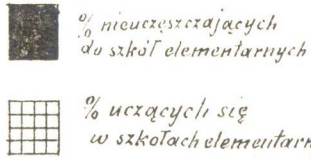 % nieuczęszczających
do szkół elementarnych
% uczących się
w szkołach elementarn